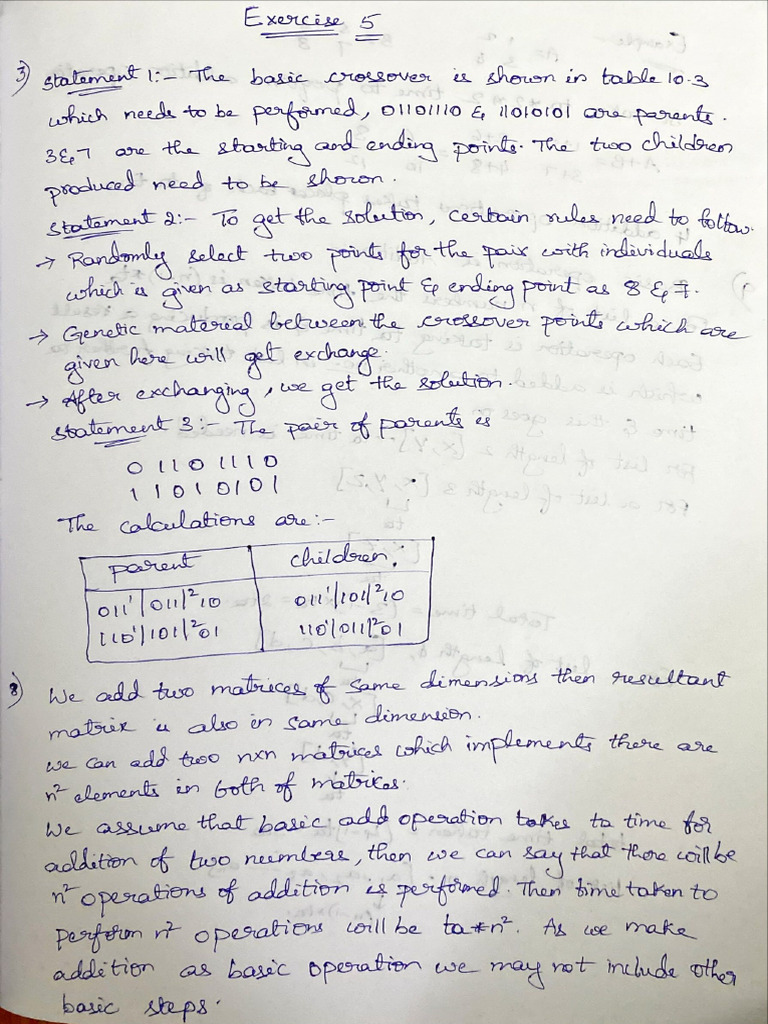 Exercise 5
3) Statement 1:- The basic crossover is shown in table 10.3
which needs to be performed, 01101110 & 11010101 are parents.
3 & 7 are the starting and ending points. The two children
produced need to be shown.
Statement 2:- To get the solution, certain rules need to follow.
→ Randomly select two points for the pair with individuals
which is given as starting point & ending point as 8 & 7.
→ Genetic material between the crossover points which are
given here will get exchange.
→ After exchanging, we get the solution.
Statement 3:- The pair of parents is
0 1 1 0 1 1 1 0
1 1 0 1 0 1 0 1
The calculations are:-
parent children.
011¹|011|²10 011¹|101|²10
110¹|101|²01 110¹|011|²01
8) We add two matrices of same dimensions then resultant
matrix is also in same dimension.
we can add two nxn matrices which implements there are
n² elements in both of matrices.
We assume that basic add operation takes ta time for
addition of two numbers, then we can say that there will be
n² operations of addition is performed. Then time taken to
perform n² operations will be ta*n². As we make
addition as basic operation we may not include other
basic steps.